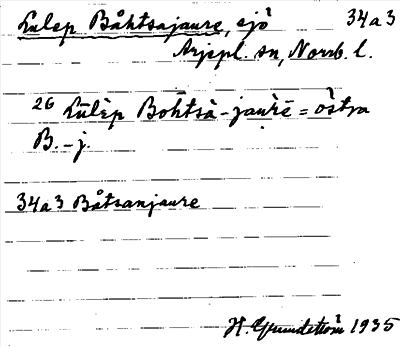 Lulep Båhtsajaure, sjö 34a3
Arjepl. sn, Norrb. l.
26 Lūlēp Bohtsà-jaurē = östra
B.-j.
34a3 Båtsanjaure
H. Grundström 1935